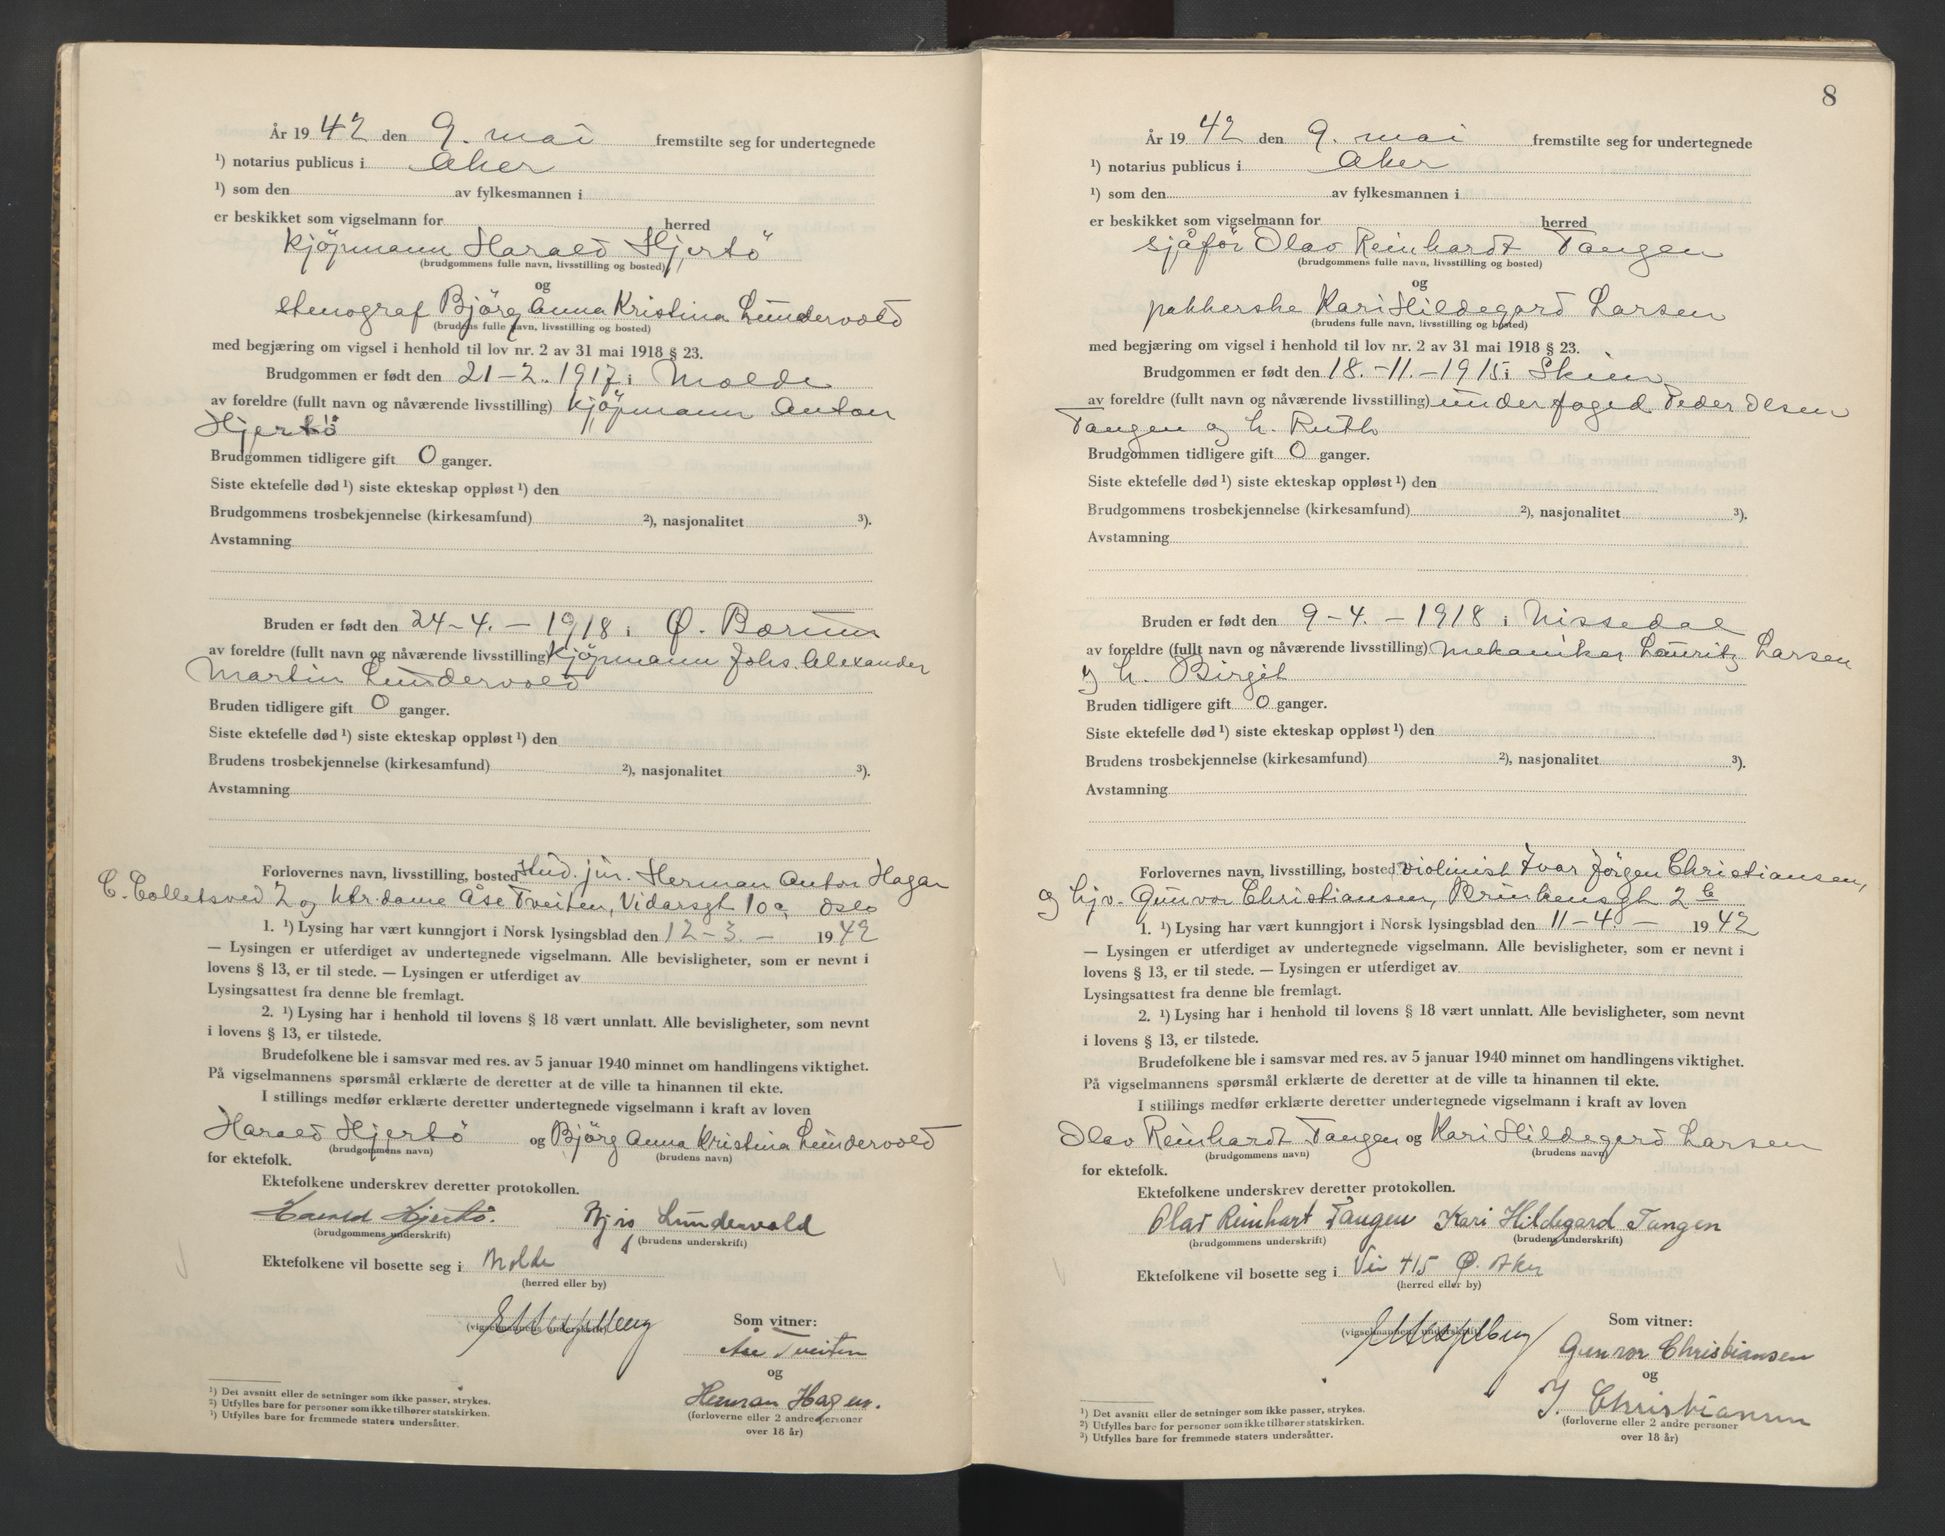 År 1942 den 9. mai fremstilte seg for undertegnede
¹) notarius publicus i Aker
¹) som den av fylkesmannen i
er beskikket som vigselmann for herred
kjöpmann Harald Hjertö
(brudgommens fulle navn, livsstilling og bosted)
og
stenograf Björg Anna Kristina Lundervold
(brudens fulle navn, livsstilling og bosted)
med begjæring om vigsel i henhold til lov nr. 2 av 31 mai 1918 § 23.
Brudgommen er født den 21-2. 1917 i Molde
av foreldre (fullt navn og nåværende livsstilling) kjöpmann Anton
Hjertö
Brudgommen tidligere gift 0 ganger.
Siste ektefelle død ¹) siste ekteskap oppløst ¹) den
Brudgommens trosbekjennelse (kirkesamfund) ²), nasjonalitet ³).
Avstamning
Bruden er født den 24-4.-1918 i Ø. Bærum
av foreldre (fullt navn og nåværende livsstilling) kjöpmann Johs. Alexander
Martin Lundervold
Bruden tidligere gift 0 ganger.
Siste ektefelle død ¹) siste ekteskap oppløst ¹) den
Brudens trosbekjennelse (kirkesamfund) ²), nasjonalitet ³).
Avstamning
Forlovernes navn, livsstilling, bosted Stud. jur. Herman Anton Hagen
C. Colletsvei 2 og ktr.dame Åse Tveiten, Vidarsgt 10a Oslo
1. ¹) Lysing har vært kunngjort i Norsk lysingsblad den 12-3.- 1942
— Lysingen er utferdiget av undertegnede vigselmann. Alle bevisligheter, som er nevnt i
lovens § 13, er til stede. — Lysingen er utferdiget av
Lysingsattest fra denne ble fremlagt.
2. ¹) Lysing har i henhold til lovens § 18 vært unnlatt. Alle bevisligheter, som nevnt
i lovens § 13, er tilstede.
Brudefolkene ble i samsvar med res. av 5 januar 1940 minnet om handlingens viktighet.
På vigselmannens spørsmål erklærte de deretter at de ville ta hinannen til ekte.
I stillings medfør erklærte deretter undertegnede vigselmann i kraft av loven
Harald Hjertö og Björg Anna Kristina Lundervold
(brudgommens navn) (brudens navn)
for ektefolk.
Ektefolkene underskrev deretter protokollen.
Harald Hjertö. Lundervold
(brudgommens underskrift) (brudens underskrift)
Ektefolkene vil bosette seg i Molde
(herred eller by)
Som vitner:
(vigselmannens underskrift)
Åse Tveiten
og
Herman Hagen.
(forloverne eller 2 andre personer
over 18 år)
¹) Det avsnitt eller de setninger som ikke passer, strykes.
²) Utfylles bare for personer som ikke tilhører statskirken.
³) Utfylles bare for fremmede staters undersåtter.
8
År 1942 den 9. mai fremstilte seg for undertegnede
¹) notarius publicus i Aker
¹) som den av fylkesmannen i
er beskikket som vigselmann for herred
sjåför Olav Reinhardt Tangen
(brudgommens fulle navn, livsstilling og bosted)
og
pakkerske Kari Hildegard Larsen
(brudens fulle navn, livsstilling og bosted)
med begjæring om vigsel i henhold til lov nr. 2 av 31 mai 1918 § 23.
Brudgommen er født den 18.-11.-1915 i Skien
av foreldre (fullt navn og nåværende livsstilling) underfoged Peder Olsen
Tangen og h. Ruth
Brudgommen tidligere gift 0 ganger.
Siste ektefelle død ¹) siste ekteskap oppløst ¹) den
Brudgommens trosbekjennelse (kirkesamfund) ²), nasjonalitet ³).
Avstamning
Bruden er født den 9-4.-1918 i Nissedal
av foreldre (fullt navn og nåværende livsstilling) mekaniker Lauritz Larsen
og h. Birgit
Bruden tidligere gift 0 ganger.
Siste ektefelle død ¹) siste ekteskap oppløst ¹) den
Brudens trosbekjennelse (kirkesamfund) ²), nasjonalitet ³).
Avstamning
Forlovernes navn, livsstilling, bosted violinist Ivar Jörgen Christiansen,
og hjv. Gunvor Christiansen, Brinkensgt 2 b
1. ¹) Lysing har vært kunngjort i Norsk lysingsblad den 11-4.- 1942
— Lysingen er utferdiget av undertegnede vigselmann. Alle bevisligheter, som er nevnt i
lovens § 13, er til stede. — Lysingen er utferdiget av
Lysingsattest fra denne ble fremlagt.
2. ¹) Lysing har i henhold til lovens § 18 vært unnlatt. Alle bevisligheter, som nevnt
i lovens § 13, er tilstede.
Brudefolkene ble i samsvar med res. av 5 januar 1940 minnet om handlingens viktighet.
På vigselmannens spørsmål erklærte de deretter at de ville ta hinannen til ekte.
I stillings medfør erklærte deretter undertegnede vigselmann i kraft av loven
Olav Reinhardt Tangen og Kari Hildegard Larsen
(brudgommens navn) (brudens navn)
for ektefolk.
Ektefolkene underskrev deretter protokollen.
Olav Reinhart Tangen Kari Hildegard Tangen
(brudgommens underskrift) (brudens underskrift)
Ektefolkene vil bosette seg i Vei 415 Ø. Aker
(herred eller by)
Som vitner:
(vigselmannens underskrift)
Gunvor Christiansen
og
I. Christiansen
(forloverne eller 2 andre personer
over 18 år)
¹) Det avsnitt eller de setninger som ikke passer, strykes.
²) Utfylles bare for personer som ikke tilhører statskirken.
³) Utfylles bare for fremmede staters undersåtter.